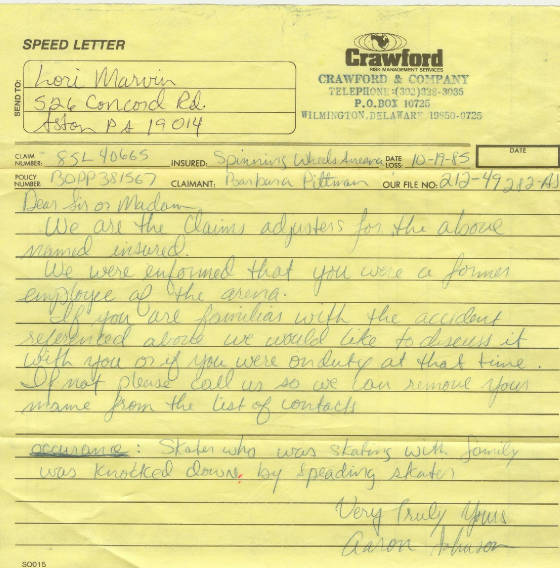 SPEED LETTER
Crawford
RISK MANAGEMENT SERVICES
CRAWFORD & COMPANY
TELEPHONE:(302)328-3035
P.O.BOX 10725
WILMINGTON,DELAWARE 19850-0725
SEND TO:
Lori Marvin
526 Concord Rd.
Aston PA 19014
CLAIM NUMBER: 85L 40665 INSURED: Spinning Wheels Arena DATE LOSS: 10-19-85 DATE
POLICY NUMBER BOPP381567 CLAIMANT: Barbara Pittman OUR FILE NO: 212-49282-AJ
Dear Sir or Madam
We are the Claims adjusters for the above
named insured.
We were enformed that you were a former
employee of the arena.
If you are familiar with the accident
referenced above we would like to discuss it
with you or if you were on duty at that time.
If not please call us so we can remove your
name from the list of contacts
occurance: Skater who was skating with family
was knocked down by speading skater
Very Truly Yours
Aaron Johnson
SO015